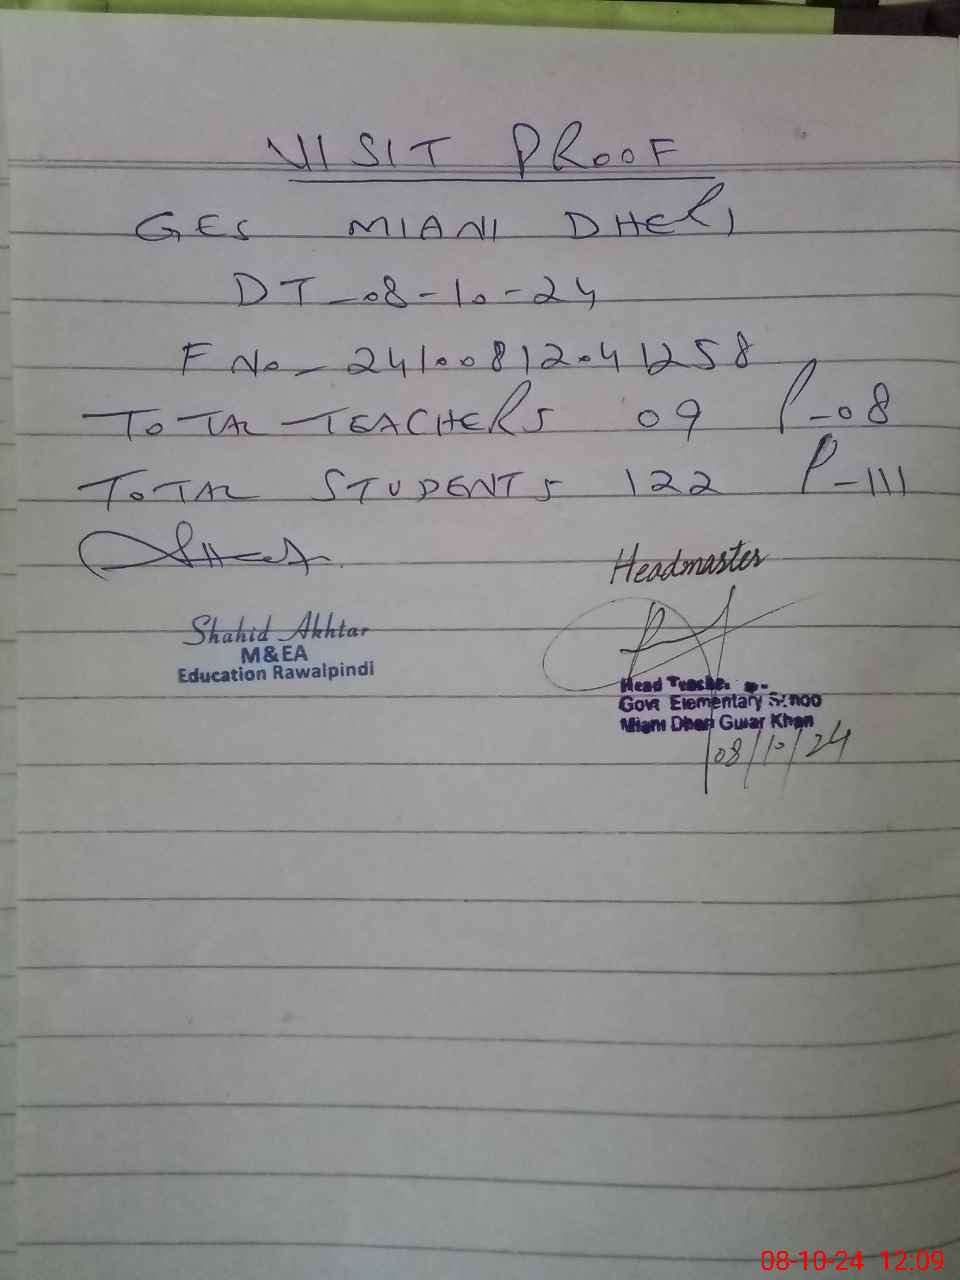 VISIT PROOF
GES MIANI DHERI
DT - 08-10-24
F No - 24100812041258
TOTAL TEACHERS 09 P-08
TOTAL STUDENTS 122 P-111
Headmaster
Shahid Akhtar
M&EA
Education Rawalpindi
Head
Govt Elementary
Miani Gujar Khan
08/10/24
08-10-24 12:09